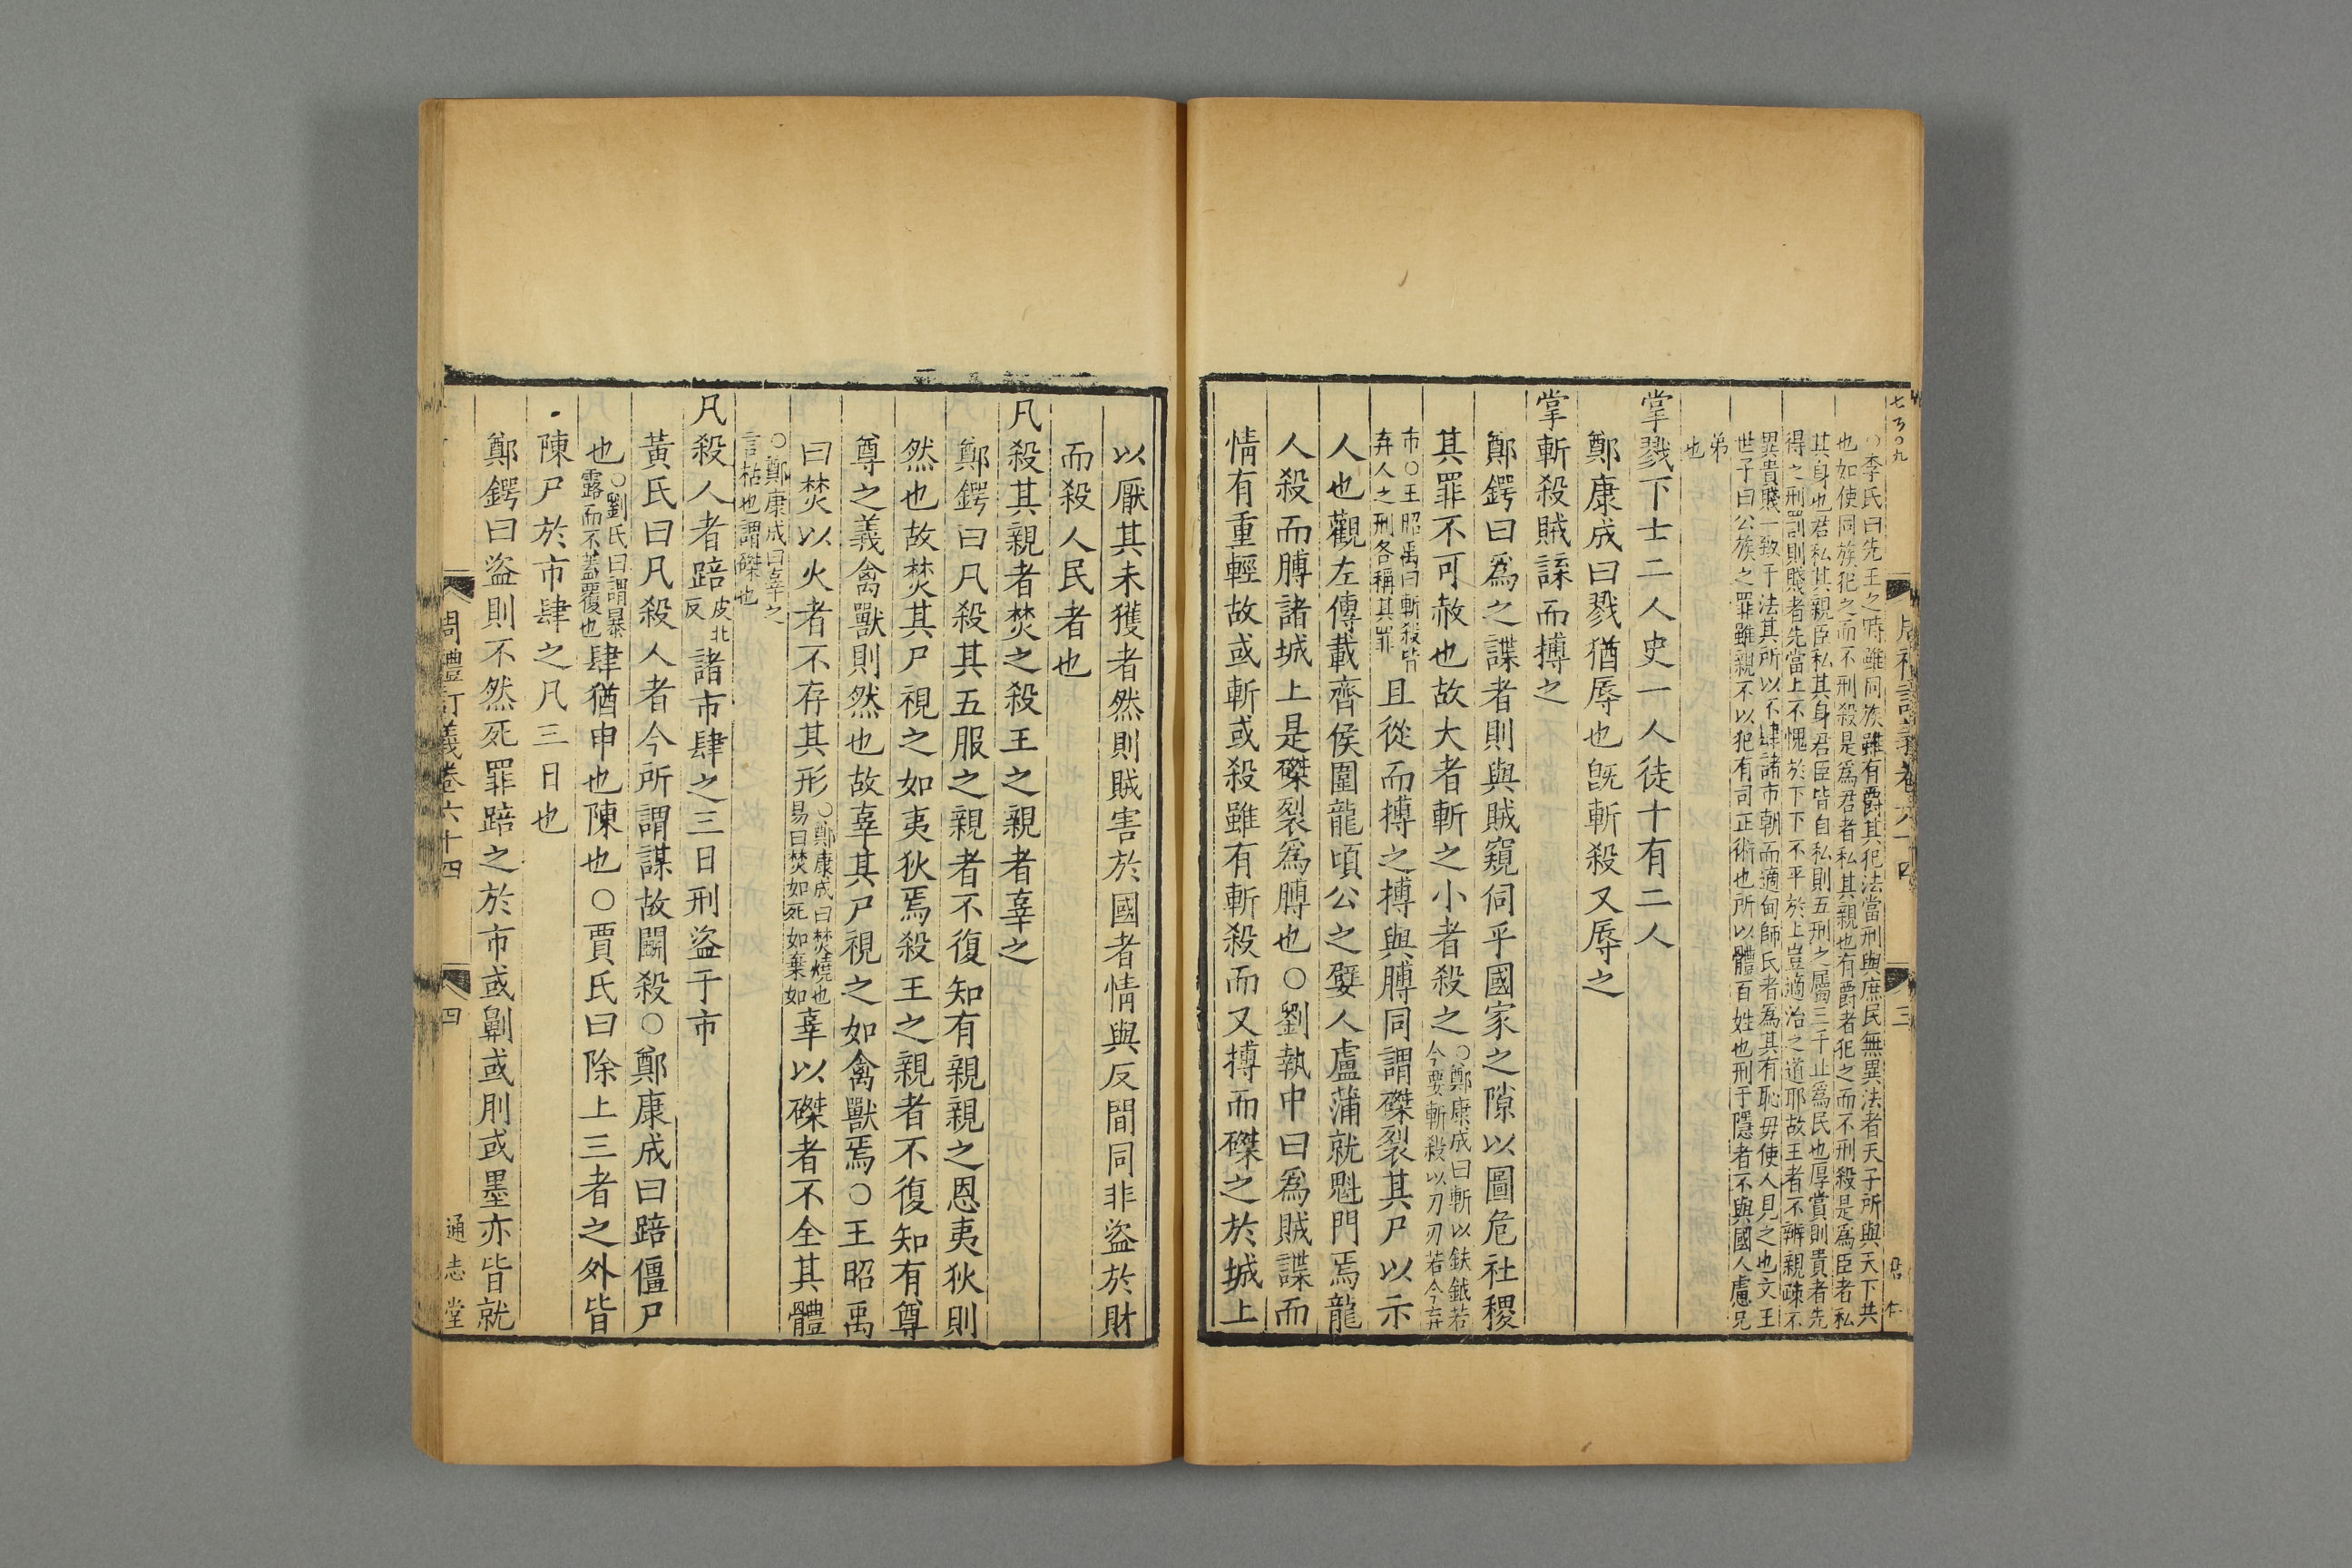 七百〇九
周禮訂義卷六十四
三
君
本
○李氏曰先王之時雖同族雖有爵其犯法當刑與庶民無異法者天子所與天下共
也如使同族犯之而不刑殺是爲君者私其親也有爵者犯之而不刑殺是爲臣者私
其身也君私其親臣私其身君臣皆自私則五刑之屬三千止爲民也厚賞則貴者先
得之刑罰則賤者先當上不愧於下下不平於上豈適治之道耶故王者不辨親疎不
異貴賤一致于法其所以不肆諸市朝而適甸師氏者為其有恥毋使人見之也文王
世子曰公族之罪雖親不以犯有司正術也所以體百姓也刑于隱者不與國人慮兄
弟
也
掌戮下士二人史一人徒十有二人
鄭康成曰戮猶辱也旣斬殺又辱之
掌斬殺賊諜而搏之
鄭鍔曰爲之諜者則與賊窺伺乎國家之隙以圖危社稷
其罪不可赦也故大者斬之小者殺之○鄭康成曰斬以鈇鉞若
今要斬殺以刀刃若今弃
市○王昭禹曰斬殺皆
弃人之刑各稱其罪且從而搏之搏與膊同謂磔裂其尸以示
人也觀左傳載齊侯圍龍頃公之嬖人盧蒲就魁門焉龍
人殺而膊諸城上是磔裂爲膊也○劉執中曰爲賊諜而
情有重輕故或斬或殺雖有斬殺而又搏而磔之於城上
以厭其未獲者然則賊害於國者情與反間同非盜於財
而殺人民者也
凡殺其親者焚之殺王之親者辜之
鄭鍔曰凡殺其五服之親者不復知有親親之恩夷狄則
然也故焚其尸視之如夷狄焉殺王之親者不復知有尊
尊之義禽獸則然也故辜其尸視之如禽獸焉○王昭禹
曰焚以火者不存其形○鄭康成曰焚燒也
易曰焚如死如棄如辜以磔者不全其體
○鄭康成曰辜之
言枯也謂磔也
凡殺人者踣皮北
反諸市肆之三日刑盜于市
黃氏曰凡殺人者今所謂謀故鬭殺○鄭康成曰踣僵尸
也○劉氏曰謂暴
露而不蓋覆也肆猶申也陳也○賈氏曰除上三者之外皆
陳尸於市肆之凡三日也
鄭鍔曰盜則不然死罪踣之於市或劓或刖或墨亦皆就
周禮訂義卷六十四
四
通志堂